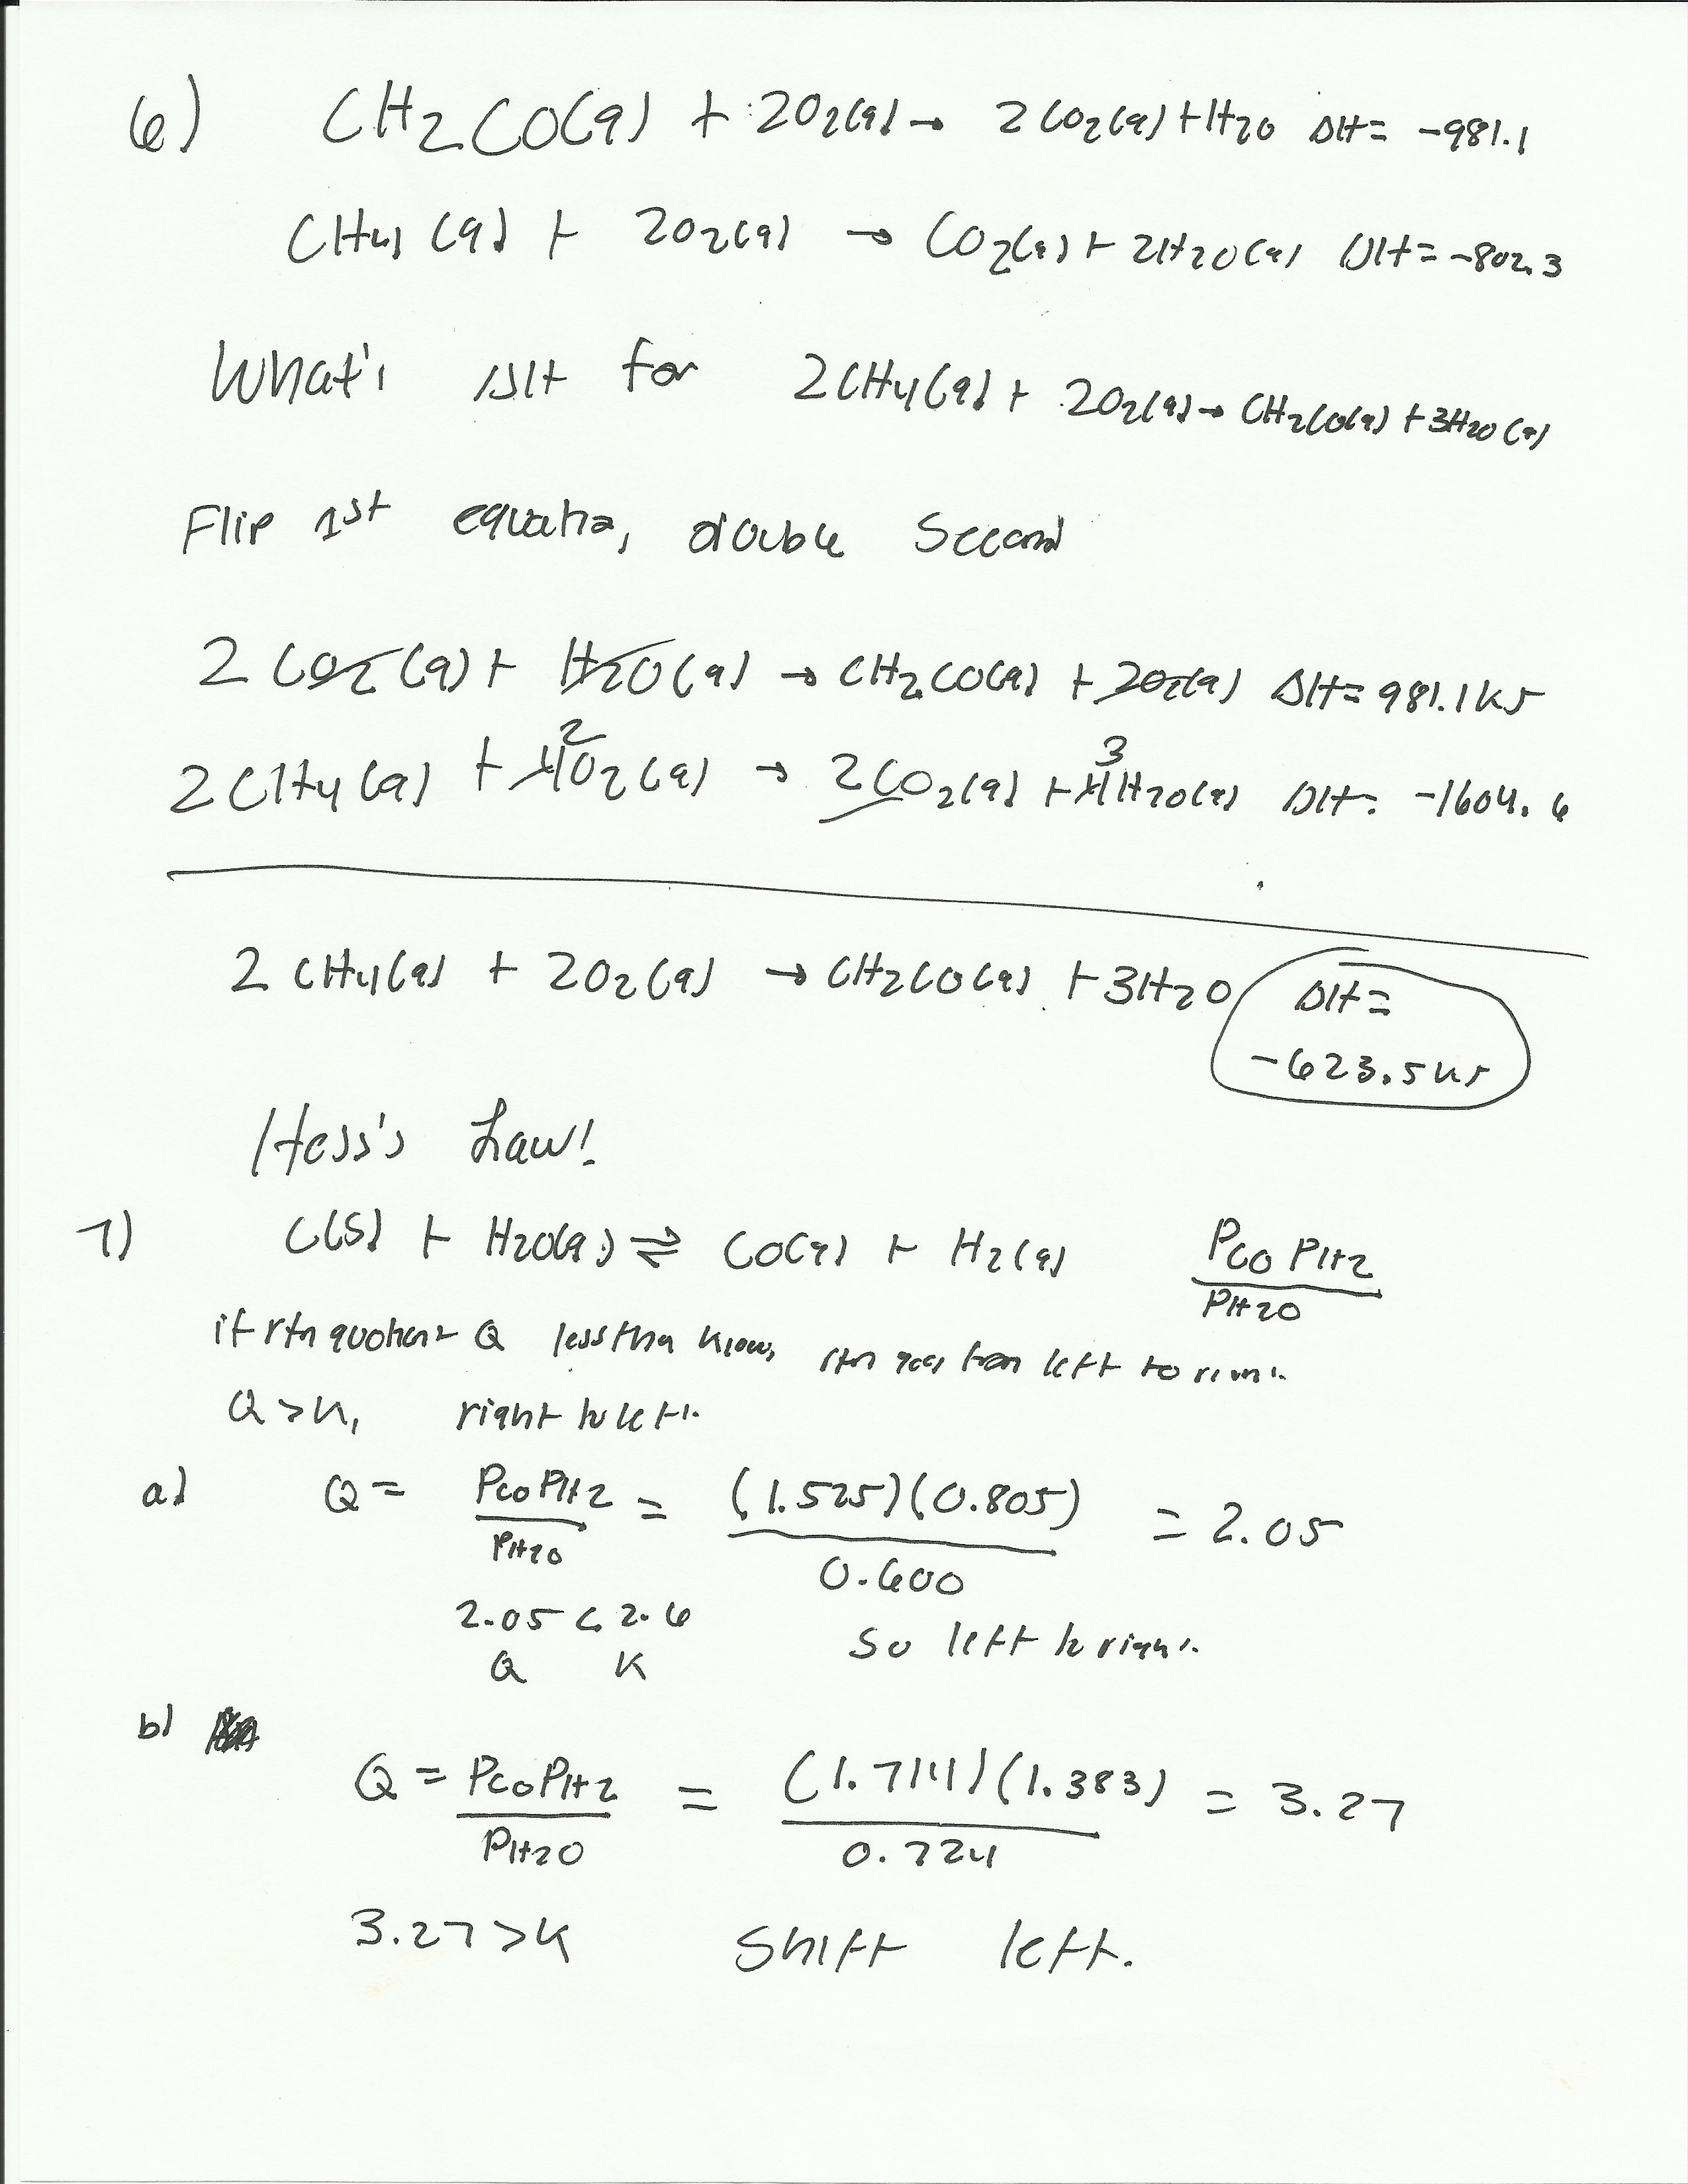 6) CH2CO(g) + 2O2(g) → 2CO2(g) + H2O ΔH = -981.1
CH4(g) + 2O2(g) → CO2(g) + 2H2O(g) ΔH = -802.3
What's ΔH for 2CH4(g) + 2O2(g) → CH2CO(g) + 3H2O(g)
Flip 1st equation, double second
2CO2(g) + H2O(g) → CH2CO(g) + 2O2(g) ΔH = 981.1kJ
2CH4(g) + 4 2 O2(g) → 2CO2(g) + 4 3 H2O(g) ΔH = -1604.6
2CH4(g) + 2O2(g) → CH2CO(g) + 3H2O ΔH =
-623.5kJ
Hess's Law!
7) C(s) + H2O(g) ⇌ CO(g) + H2(g) PCO PH2
PH2O
if rxn quotient Q less than rxn goes from left to right.
Q > K, right to left.
a) Q = PCO PH2 / PH2O = (1.525)(0.805) / 0.600 = 2.05
2.05 < 2.6 so left to right.
Q K
b)
Q = PCO PH2 / PH2O = (1.714)(1.383) / 0.724 = 3.27
3.27 > K shift left.